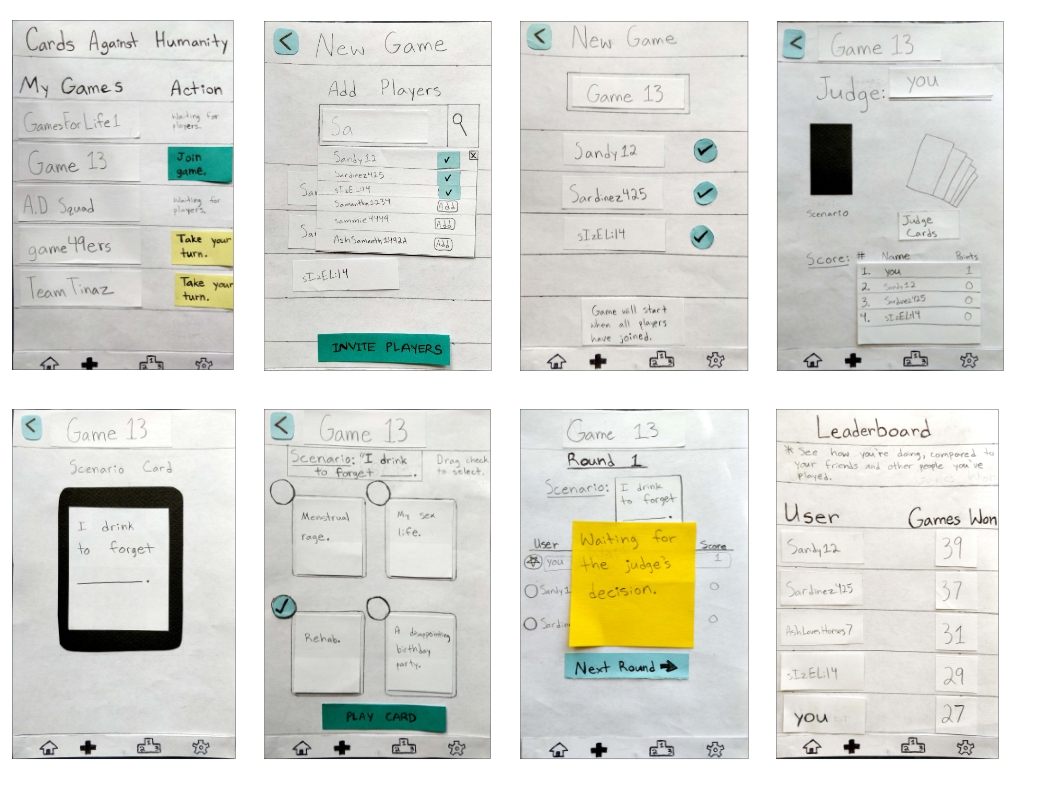 Cards Against Humanity
My Games Action
GamesForLife1 Waiting for
players.
Game 13 Join
game.
A.D Squad Waiting for
players.
game49ers Take your
turn.
Team Tinaz Take your
turn.
<
New Game
Add Players
Sa
x
Sandy12
Sardinez425
sIzELi14
Samantha1234 Add
Sammie4444 Add
AshSamantha14922 Add
Sar
Sa
sIzELi14
INVITE PLAYERS
<
New Game
Game 13
Sandy12
Sardinez425
sIzELi14
Game will start
when all players
have joined.
<
Game 13
Judge: you
Scenario
Judge
Cards
Score: # Name Points
1. you 1
2. Sandy12 0
3. Sardinez425 0
4. sIzELi14 0
1 2 3
<
Game 13
Scenario Card
I drink
to forget
______.
<
Game 13
Scenario: "I drink
to forget ____.
Drag check
to select.
Menstrual
rage.
My sex
life.
Rehab.
A disappointing
birthday
party.
PLAY CARD
Game 13
Round 1
Scenario: I drink
to forget
______.
User Score
you 1
Sandy1 0
Sardin 0
Waiting for
the judge's
decision.
Next Round
Leaderboard
* See how you're doing, compared to
your friends and other people you've
played.
User Games Won
Sandy12 39
Sardinez425 37
AshLovesHorses7 31
sIzELi14 29
you 27